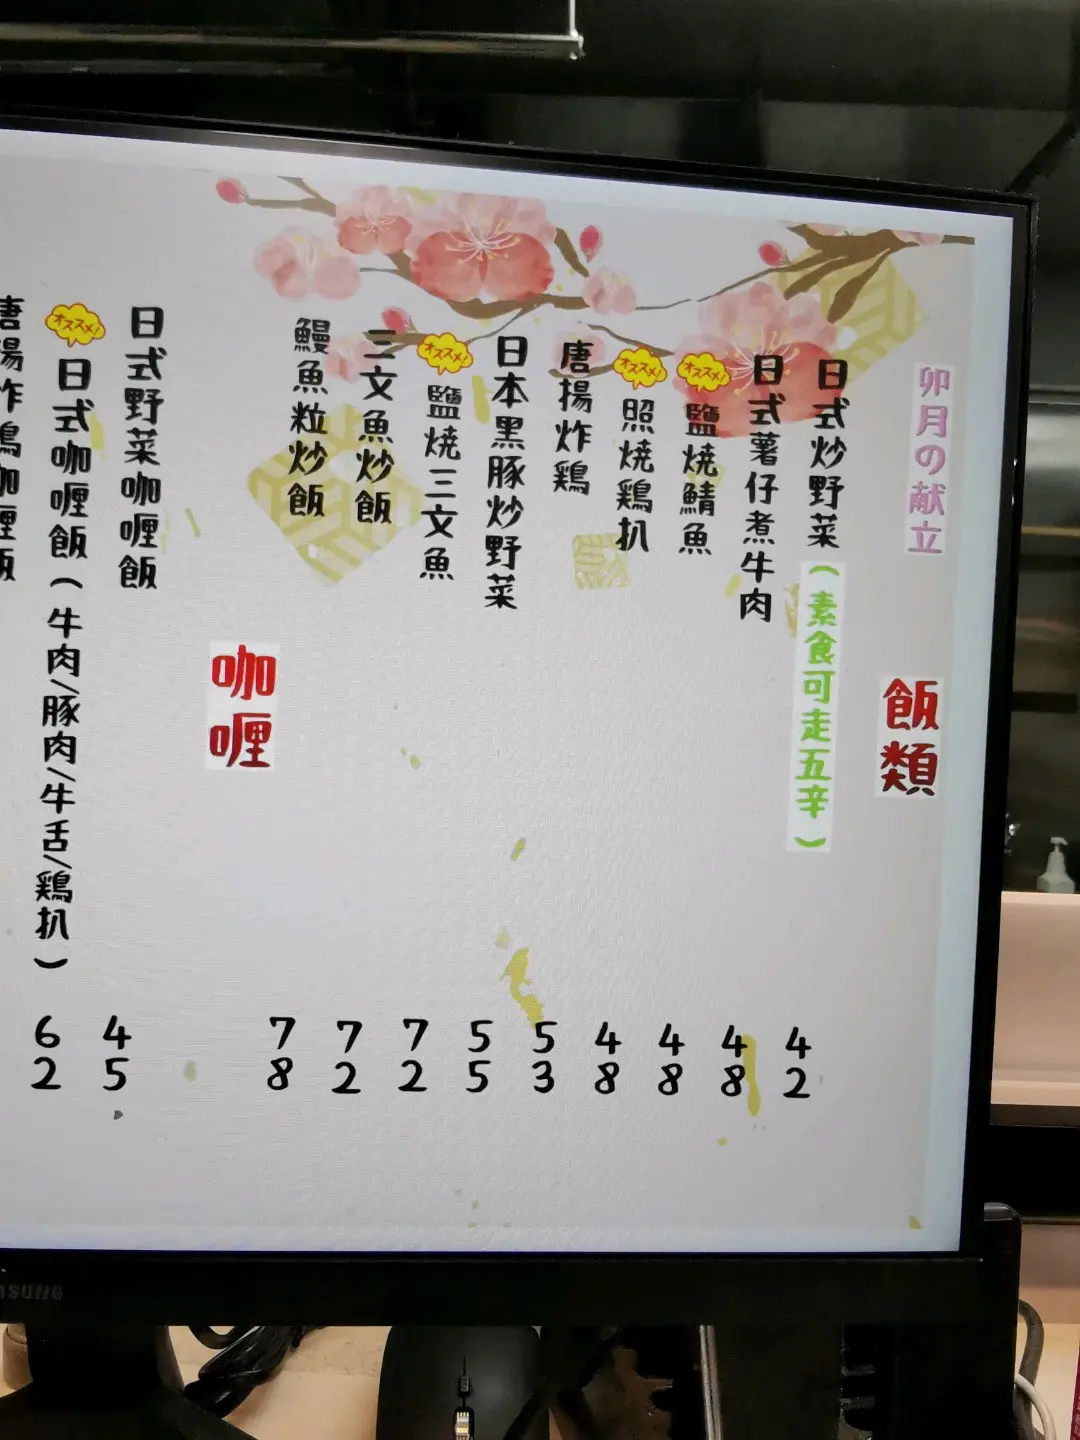 卯月の献立
飯類
日式炒野菜(素食可走五辛) 42
日式薯仔煮牛肉 48
オススメ! 鹽燒鯖魚 48
オススメ! 照燒鶏扒 48
唐揚炸鶏 53
日本黑豚炒野菜 55
オススメ! 鹽燒三文魚 72
三文魚炒飯 72
鰻魚粒炒飯 78
咖喱
日式野菜咖喱飯 45
オススメ! 日式咖喱飯(牛肉/豚肉/牛舌/鶏扒) 62
唐揚炸鶏咖喱飯